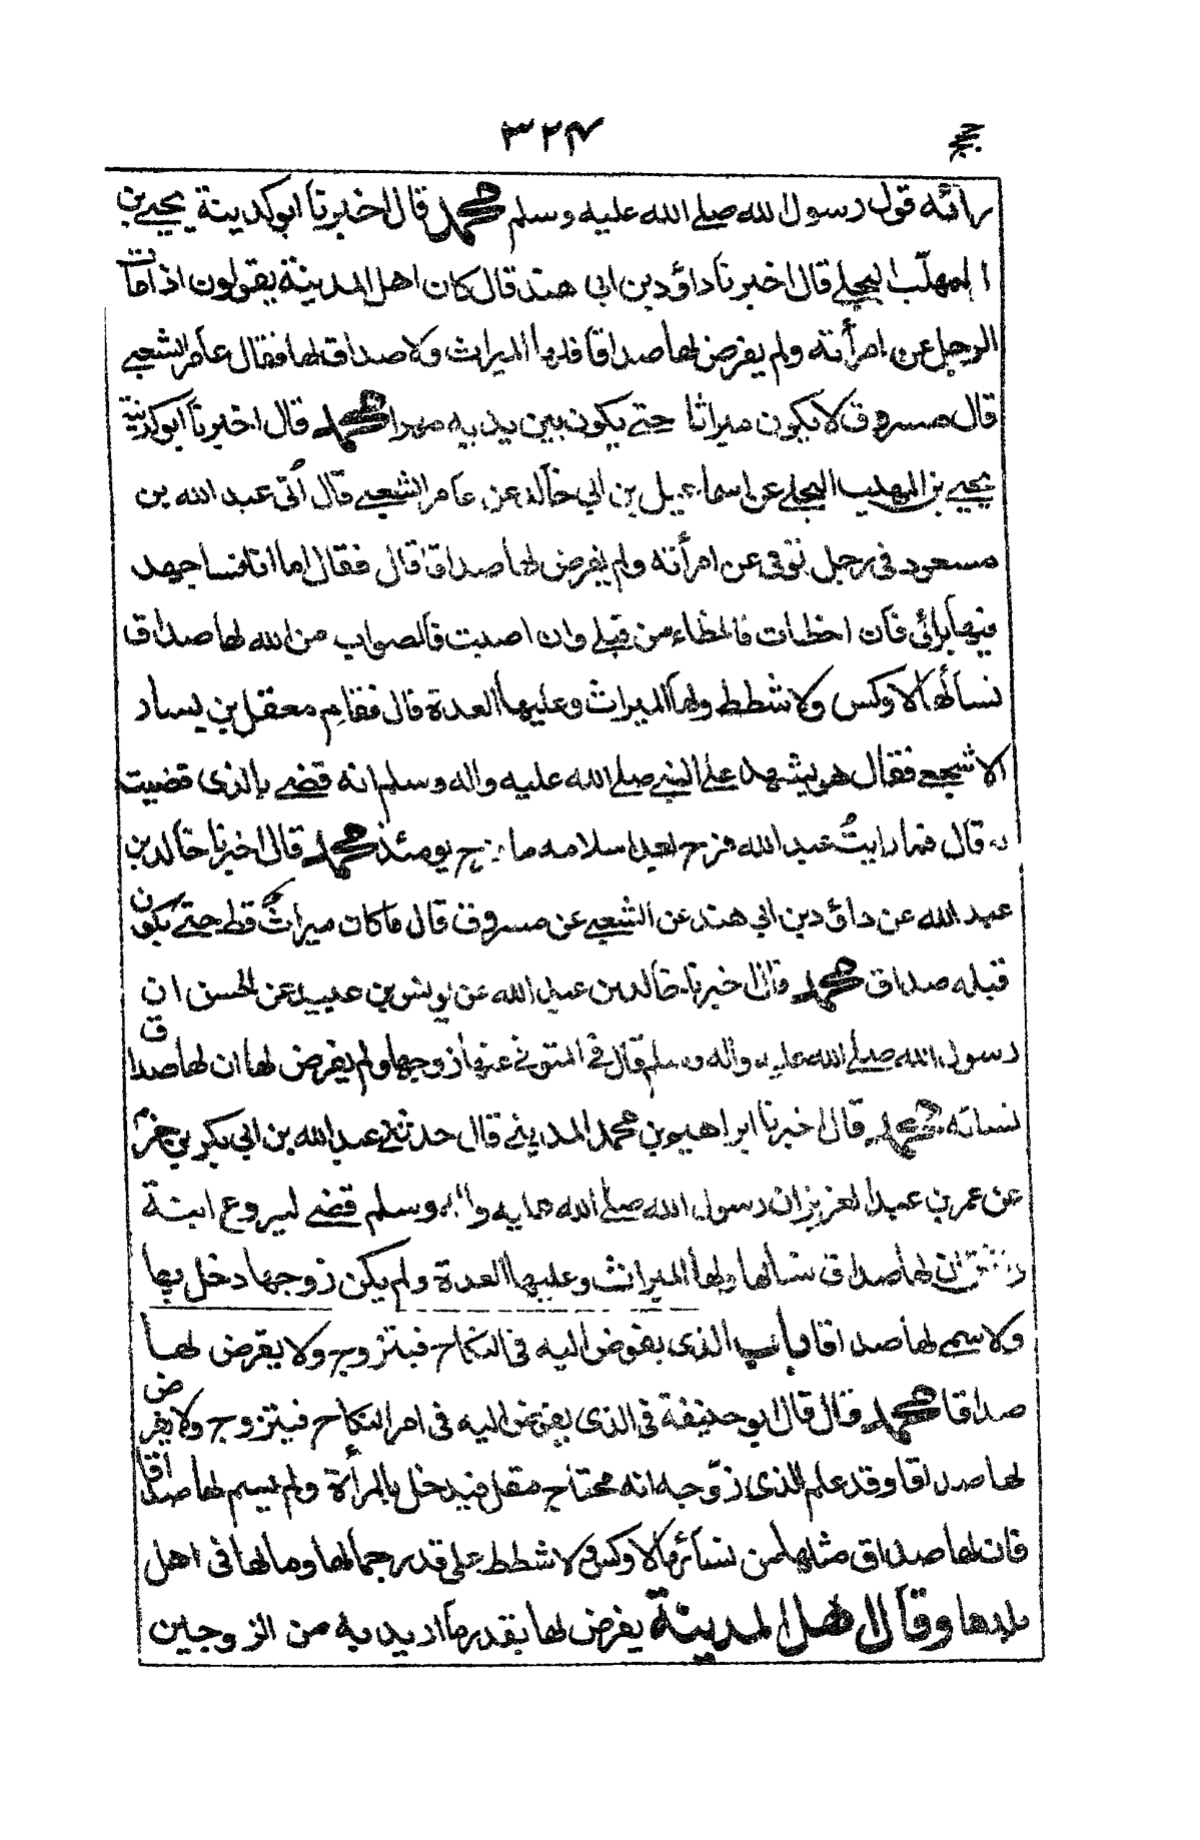 ٣٢٤ حجج
رائه قول رسول لله صلى الله عليه وسلم محمد قال اخبرنا ابوكدينة يحيى بن
المهلّب البجلي قال اخبرنا داؤد بن ابى هند قال كان اهل المدينة يقولون اذا مات
الرجل عن امرأته ولم يفرض لها صداقا فلها الميراث ولا صداق لها فقال عامر الشعبى
قال مسروق لا يكون ميراثا حتى يكون بين يديه مهرا محمد قال اخبرنا ابوكدينة
يحيى بن المهلب البجلى عن اسماعيل بن ابي خالد عن عامر الشعبى قال أتى عبد الله بن
مسعود فى رجل توفى عن امرأته ولم يفرض لها صداقا قال فقال اما انا فساجهد
فيها برائى فان اخطات فالخطاء من قبلى وان اصبت فالصواب من الله لها صداق
نسائها لا وكس ولا شطط ولها الميراث وعليها العدة قال فقام معقل بن يسار
الاشجعى فقال هو يشهد على النبى صلى الله عليه واله وسلم انه قضى بالذى قضيت
به قال فما رايتُ عبد الله فرح بعد اسلامه ما فرح يومئذ محمد قال اخبرنا خالد بن
عبد الله عن داؤد بن ابى هند عن الشعبى عن مسروق قال ما كان ميراثٌ قط حتى يكون
قبله صداق محمد قال اخبرنا خالد بن عبد الله عن يونس بن عبيد عن الحسن ان
رسول الله صلى الله عليه واله وسلم قال فى المتوفى عنها زوجها ولم يفرض لها ان لها صداق
نسائه محمد قال اخبرنا ابراهيم بن محمد المدينى قال حدثنى عبد الله بن ابى بكر بن
عن عمر بن عبد العزيز ان رسول الله صلى الله عليه واله وسلم قضى لبروع ابنة
واشق ان لها صداق نسائها ولها الميراث وعليها العدة ولم يكن زوجها دخل بها
ولا سمى لها صداقا باب الذى يفوض اليه فى النكاح فيتزوج ولا يفرض لها
صداقا محمد قال قال ابو حنيفة فى الذى يفوض اليه فى امر النكاح فيتزوج ولا يفرض
لها صداقا وقد علم الذى زوّجه انه محتاج مقل فيدخل بالمرأة ولم يسم لها صداقا
فان لها صداق مثلها من نسائها لا وكس ولا شطط على قدر جمالها ومالها فى اهل
بلدها وقال اهل المدينة يفرض لها بقدر ما اريد به من الزوجين